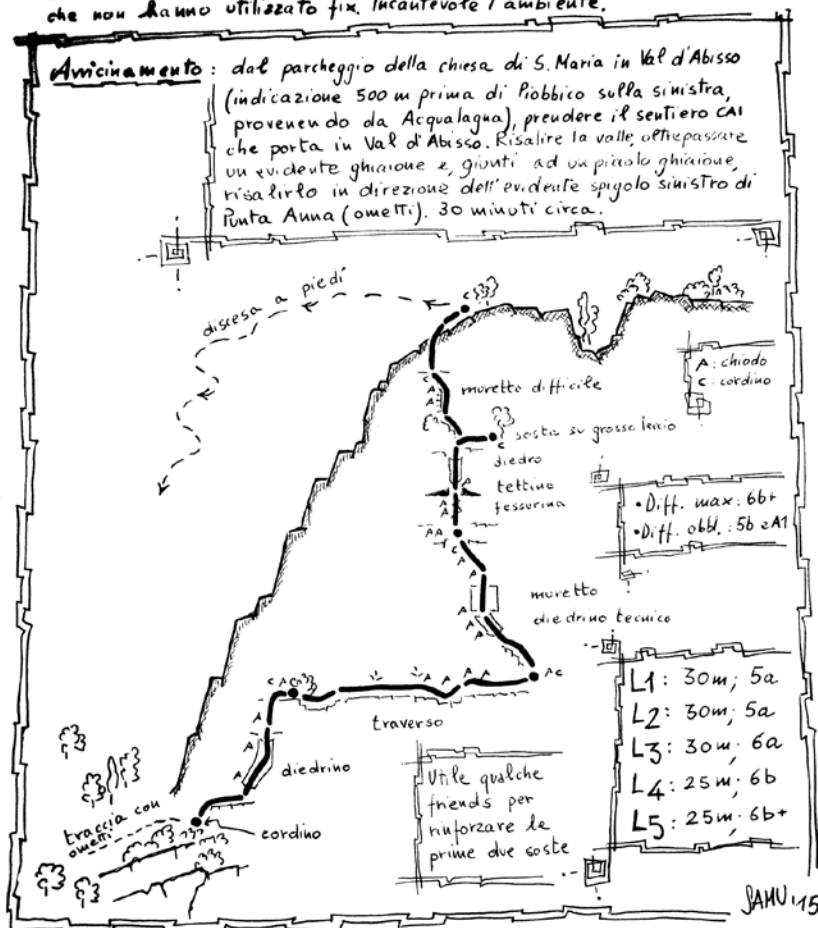 che non hanno utilizzato fix. Incantevole l'ambiente.
Avvicinamento: dal parcheggio della chiesa di S. Maria in Val d'Abisso
(indicazione 500 m prima di Piobbico sulla sinistra,
provenendo da Acqualagna), prendere il sentiero CAI
che porta in Val d'Abisso. Risalire la valle, oltrepassare
un evidente ghiaione e, giunti ad un piccolo ghiaione,
risalirlo in direzione dell'evidente spigolo sinistro di
Punta Anna (ometti). 30 minuti circa.
discesa a piedi
c
A: chiodo
c: cordino
c
A
A
muretto difficile
c
sosta su grosso leccio
diedro
tettino
fessurina
A
A
A
AA
c
A
A
• Diff. max: 6b+
• Diff. obbl.: 5b e A1
muretto
diedrino tecnico
A
A
A
A c
c A
A A A A
traverso
A
A
diedrino
traccia con
ometti
cordino
Utile qualche
friends per
rinforzare le
prime due soste
L1: 30m; 5a
L2: 30m; 5a
L3: 30m; 6a
L4: 25m; 6b
L5: 25m; 6b+
SAMU '15